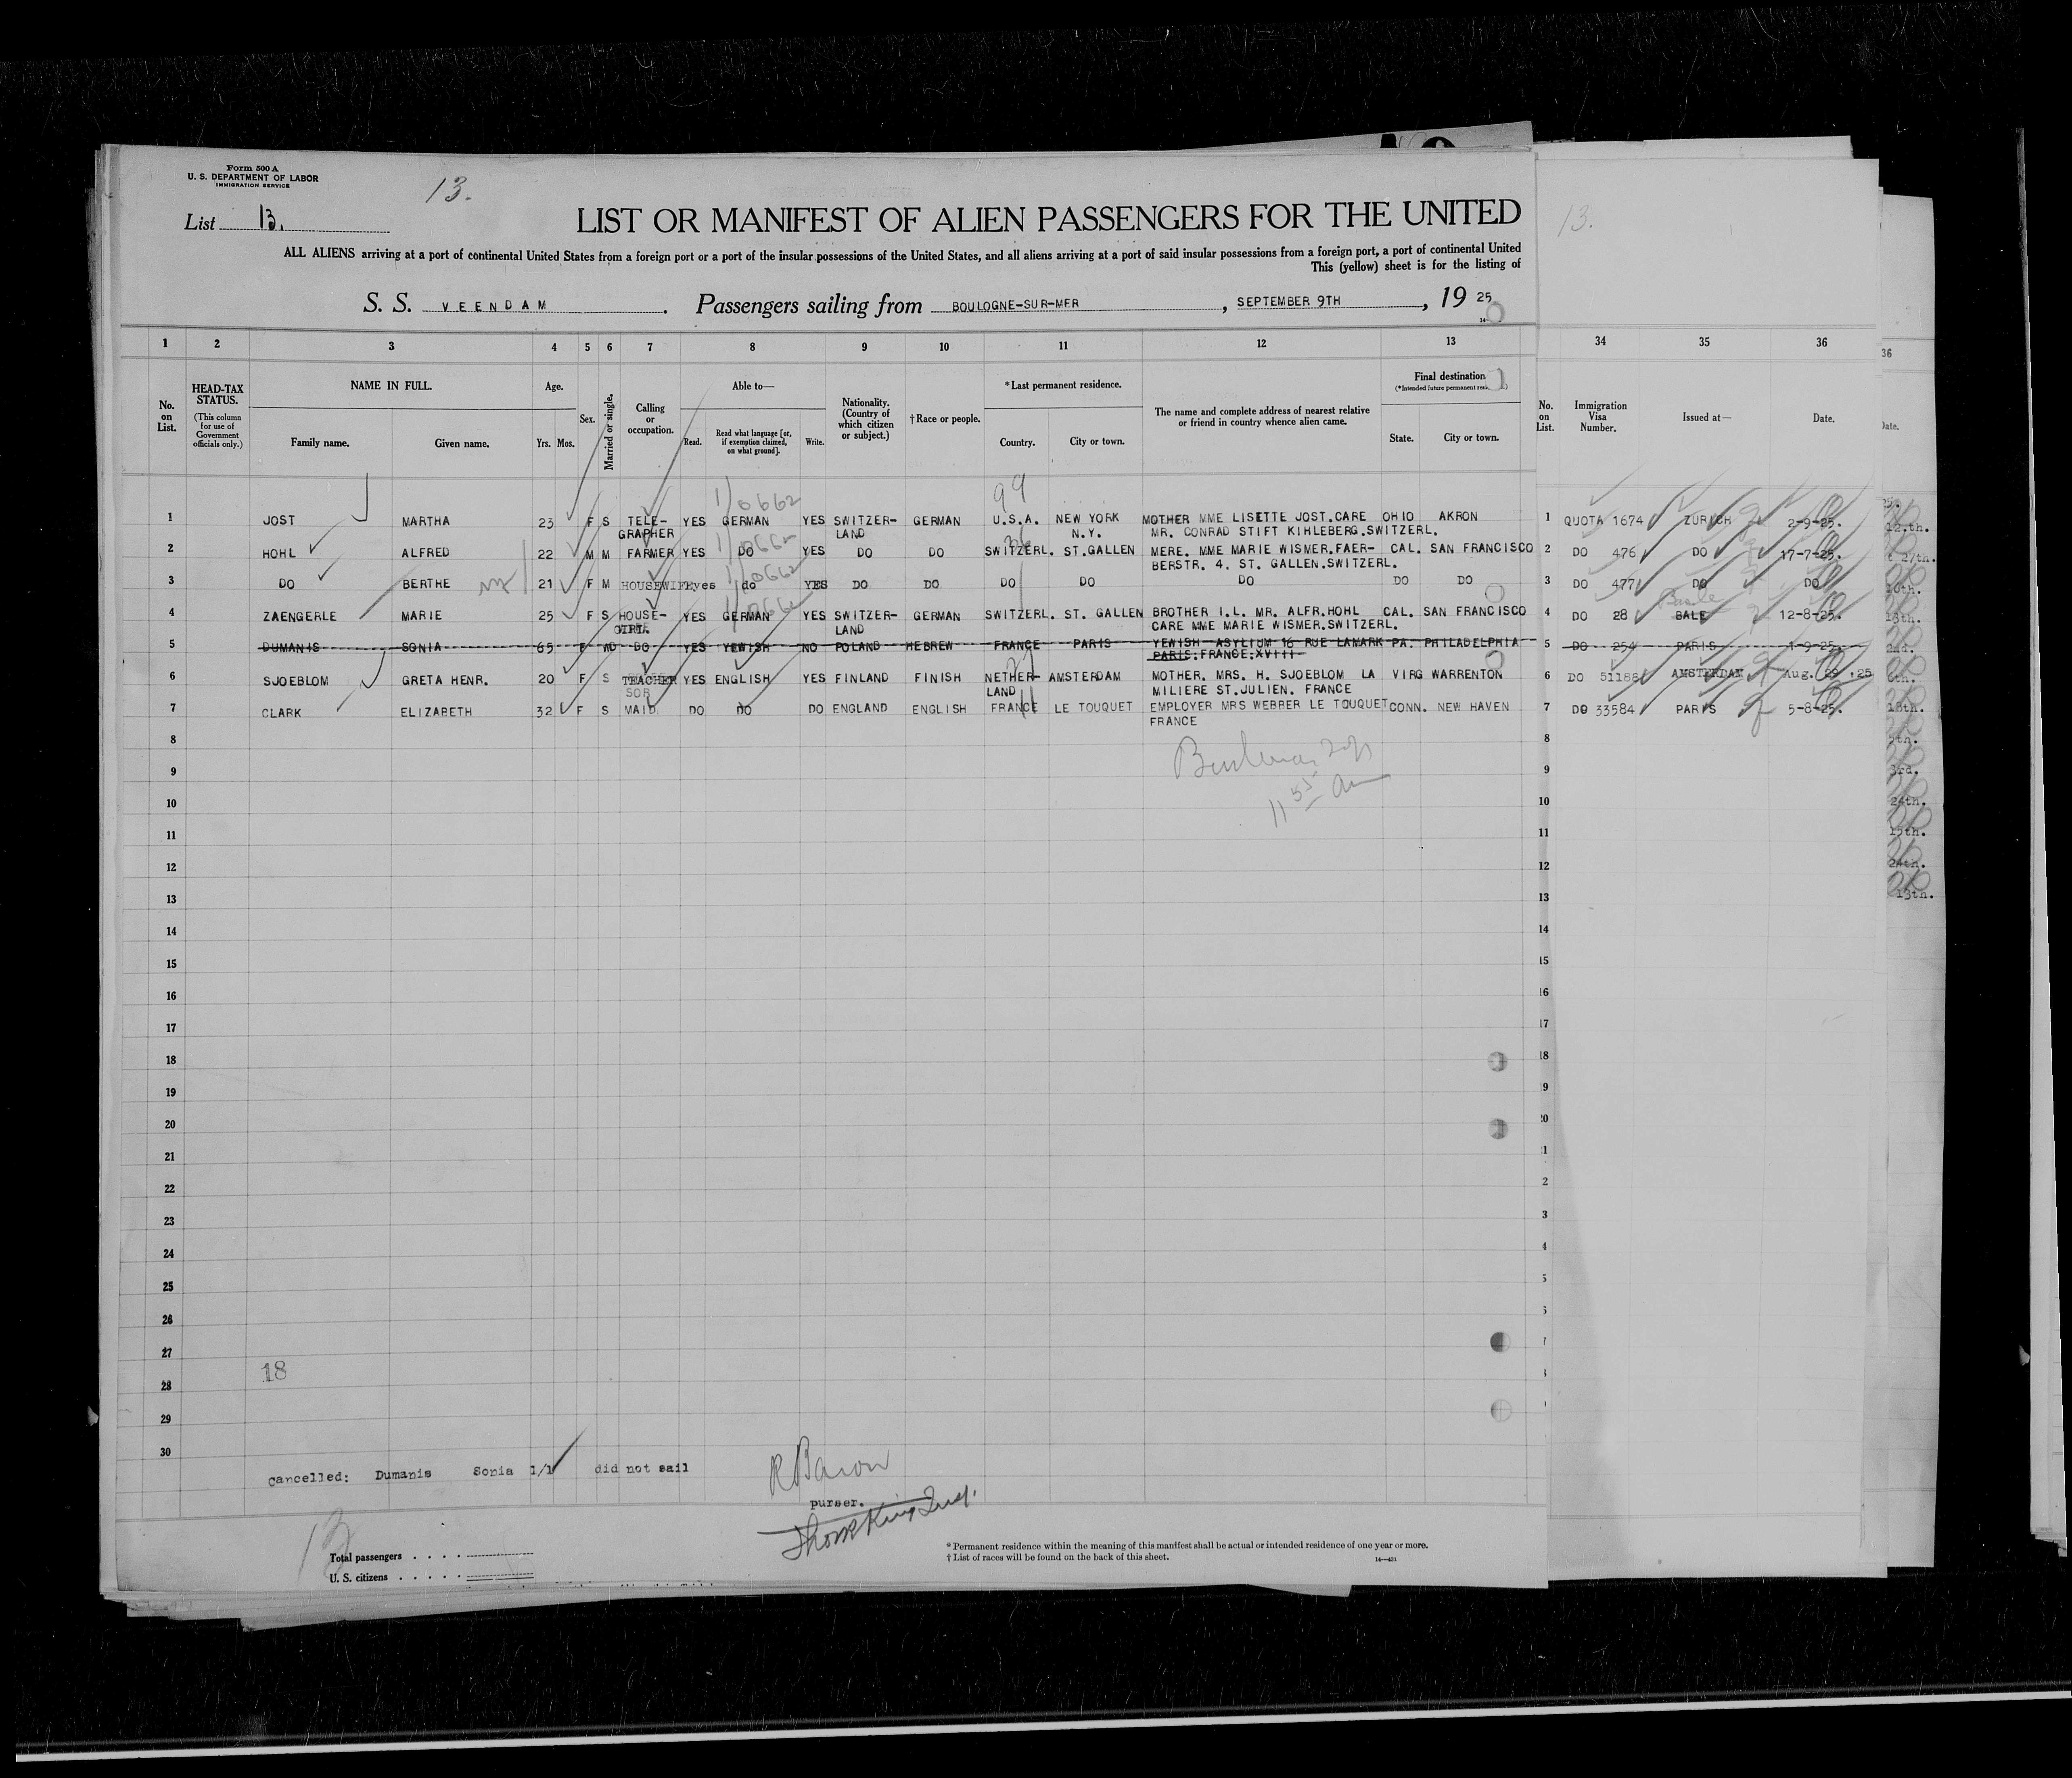 Form 500 A
U. S. DEPARTMENT OF LABOR
IMMIGRATION SERVICE
13.
List 13.
LIST OR MANIFEST OF ALIEN PASSENGERS FOR THE UNITED
13.
ALL ALIENS arriving at a port of continental United States from a foreign port or a port of the insular possessions of the United States, and all aliens arriving at a port of said insular possessions from a foreign port, a port of continental United
This (yellow) sheet is for the listing of
S. S. VEENDAM. Passengers sailing from BOULOGNE-SUR-MER, SEPTEMBER 9TH, 19 25
1 2 3 4 5 6 7 8 9 10 11 12 13 34 35 36
No. on List.
HEAD-TAX STATUS.
(This column for use of Government officials only.)
NAME IN FULL.
Family name. Given name.
Age.
Yrs. Mos.
Sex.
Married or single.
Calling or occupation.
Able to—
Read. Read what language [or, if exemption claimed, on what ground]. Write.
Nationality. (Country of which citizen or subject.)
† Race or people.
* Last permanent residence.
Country. City or town.
The name and complete address of nearest relative or friend in country whence alien came.
Final destination
State. City or town.
No. on List.
Immigration Visa Number.
Issued at—
Date.
99
1 JOST MARTHA 23 F S TELE- YES GERMAN YES SWITZER- GERMAN U.S.A. NEW YORK MOTHER MME LISETTE JOST.CARE OHIO AKRON 1 QUOTA 1674 ZURICH 2-9-25.
GRAPHER LAND N.Y. MR. CONRAD STIFT KIHLEBERG.SWITZERL.
2 HOHL ALFRED 22 M M FARMER YES DO YES DO DO SWITZERL. ST.GALLEN MERE. MME MARIE WISMER.FAER- CAL. SAN FRANCISCO 2 DO 476 DO 17-7-25.
BERSTR. 4. ST. GALLEN.SWITZERL.
3 DO BERTHE 21 F M HOUSEWIFE yes do YES DO DO DO DO DO DO DO 3 DO 477 DO DO
Basle
4 ZAENGERLE MARIE 25 F S HOUSE- YES GERMAN YES SWITZER- GERMAN SWITZERL. ST. GALLEN BROTHER I.L. MR. ALFR.HOHL CAL. SAN FRANCISCO 4 DO 28 BALE 12-8-25.
GIRL. LAND CARE MME MARIE WISMER.SWITZERL.
5 DUMANIS SONIA 65 F WD DO YES YEWISH NO POLAND HEBREW FRANCE PARIS YEWISH ASYLIUM 16 RUE LAMARK PA. PHILADELPHIA 5 DO 254 PARIS 1-9-25.
PARIS:FRANCE:XVIII
6 SJOEBLOM GRETA HENR. 20 F S TEACHER YES ENGLISH YES FINLAND FINISH NETHER- AMSTERDAM MOTHER. MRS. H. SJOEBLOM LA VIRG WARRENTON 6 DO 51186 AMSTERDAM Aug. 29 .25
LAND MILIERE ST.JULIEN. FRANCE
7 CLARK ELIZABETH 32 F S MAID DO DO DO ENGLAND ENGLISH FRANCE LE TOUQUET EMPLOYER MRS WEBBER LE TOUQUET CONN. NEW HAVEN 7 DO 33584 PARIS 5-8-25.
FRANCE
8 8
9 9
10 10
11 11
12 12
13 13
14 14
15 15
16 16
17 17
18 18
19
20
21
22
23
24
25
26
27
18
28
29
30
cancelled: Dumanis Sonia 1/1 did not sail
purser.
13
Total passengers
U. S. citizens
* Permanent residence within the meaning of this manifest shall be actual or intended residence of one year or more.
† List of races will be found on the back of this sheet.